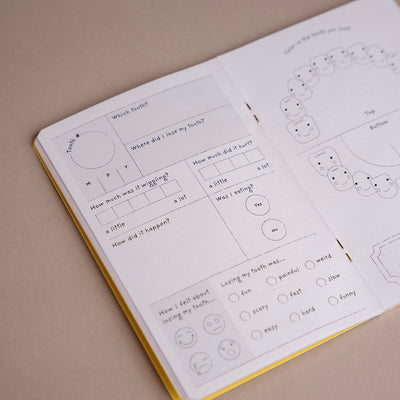 Tooth #
Which tooth?
Where did I lose my tooth?
M D Y
How much was it wiggling?
a little a lot
How much did it hurt?
a little a lot
How did it happen?
Was I eating?
Yes
No
How I felt about
losing my tooth...
Losing my tooth was...
fun painful weird
scary fast slow
easy hard funny
Color in the tooth you lost!
Top
Bottom